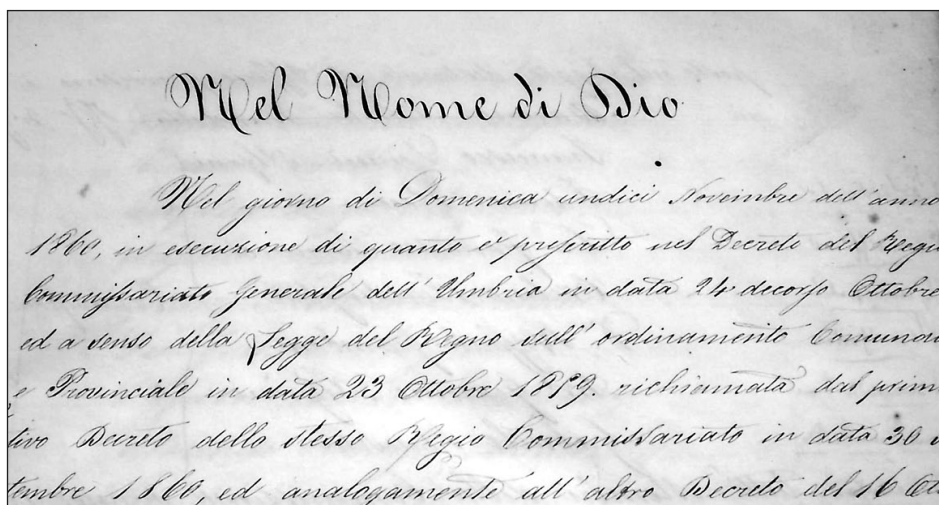 Nel Nome di Dio
Nel giorno di Domenica undici Novembre dell'anno
1860, in esecuzione di quanto è prescritto nel Decreto del Regio
Commissariato Generale dell'Umbria in data 24 decorso Ottobre
ed a senso della Legge del Regno sull'ordinamento Comuna
e Provinciale in data 23 Ottobre 1859. richiamata dal prim
tivo Decreto dello stesso Regio Commissariato in data 30
tembre 1860, ed analogamente all'altro Decreto del 16 Ott